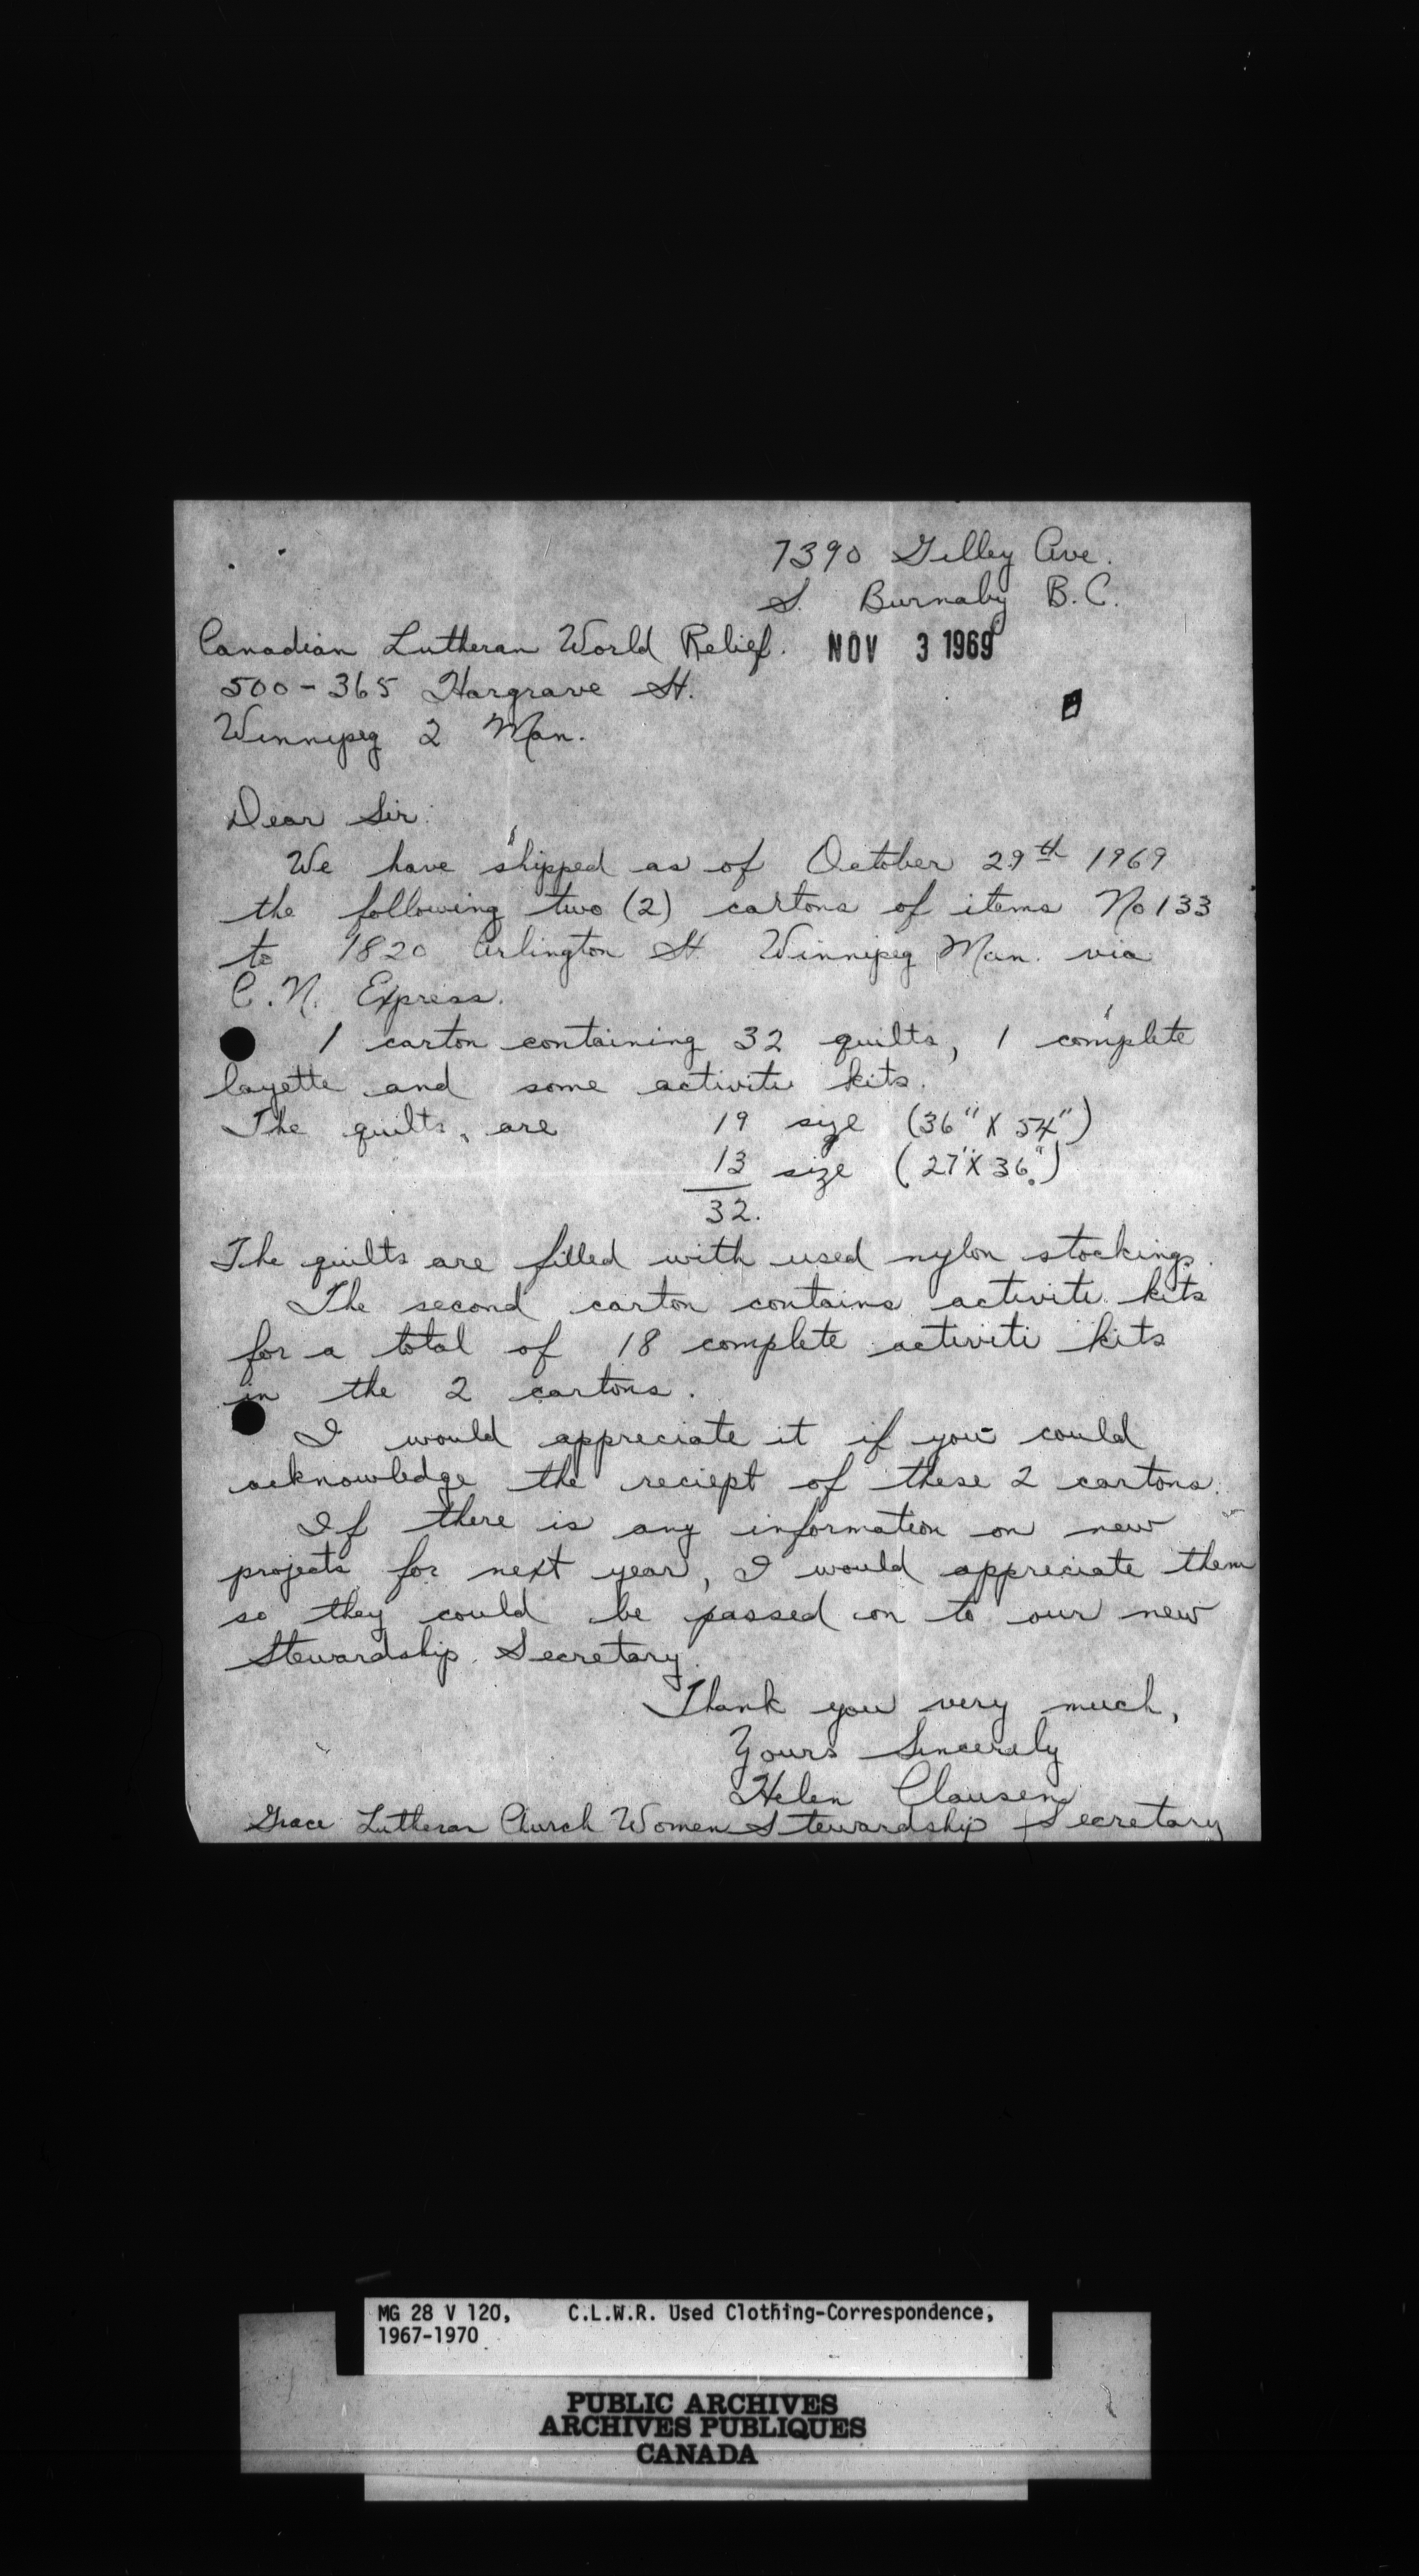 7390 Gilley Ave.
S. Burnaby B.C.
Canadian Lutheran World Relief. NOV 3 1969
500-365 Hargrave St.
Winnipeg 2 Man.
Dear Sir:
We have shipped as of October 29th 1969
the following two (2) cartons of items No 133
to 1820 Arlington St. Winnipeg Man. via
C.N. Express.
1 carton containing 32 quilts, 1 complete
layette and some activite kits.
The quilts, are 19 size (36" X 54")
13 size (27" X 36")
32.
The quilts are filled with used nylon stockings.
The second carton contains activite kits
for a total of 18 complete activiti kits
in the 2 cartons.
I would appreciate it if you could
acknowledge the reciept of these 2 cartons.
If there is any information on new
projects for next year, I would appreciate them
so they could be passed on to our new
Stewardship Secretary.
Thank you very much,
Yours Sincerely
Helen Clausen
Grace Lutheran Church Women Stewardship Secretary
MG 28 V 120, C.L.W.R. Used Clothing-Correspondence,
1967-1970
PUBLIC ARCHIVES
ARCHIVES PUBLIQUES
CANADA